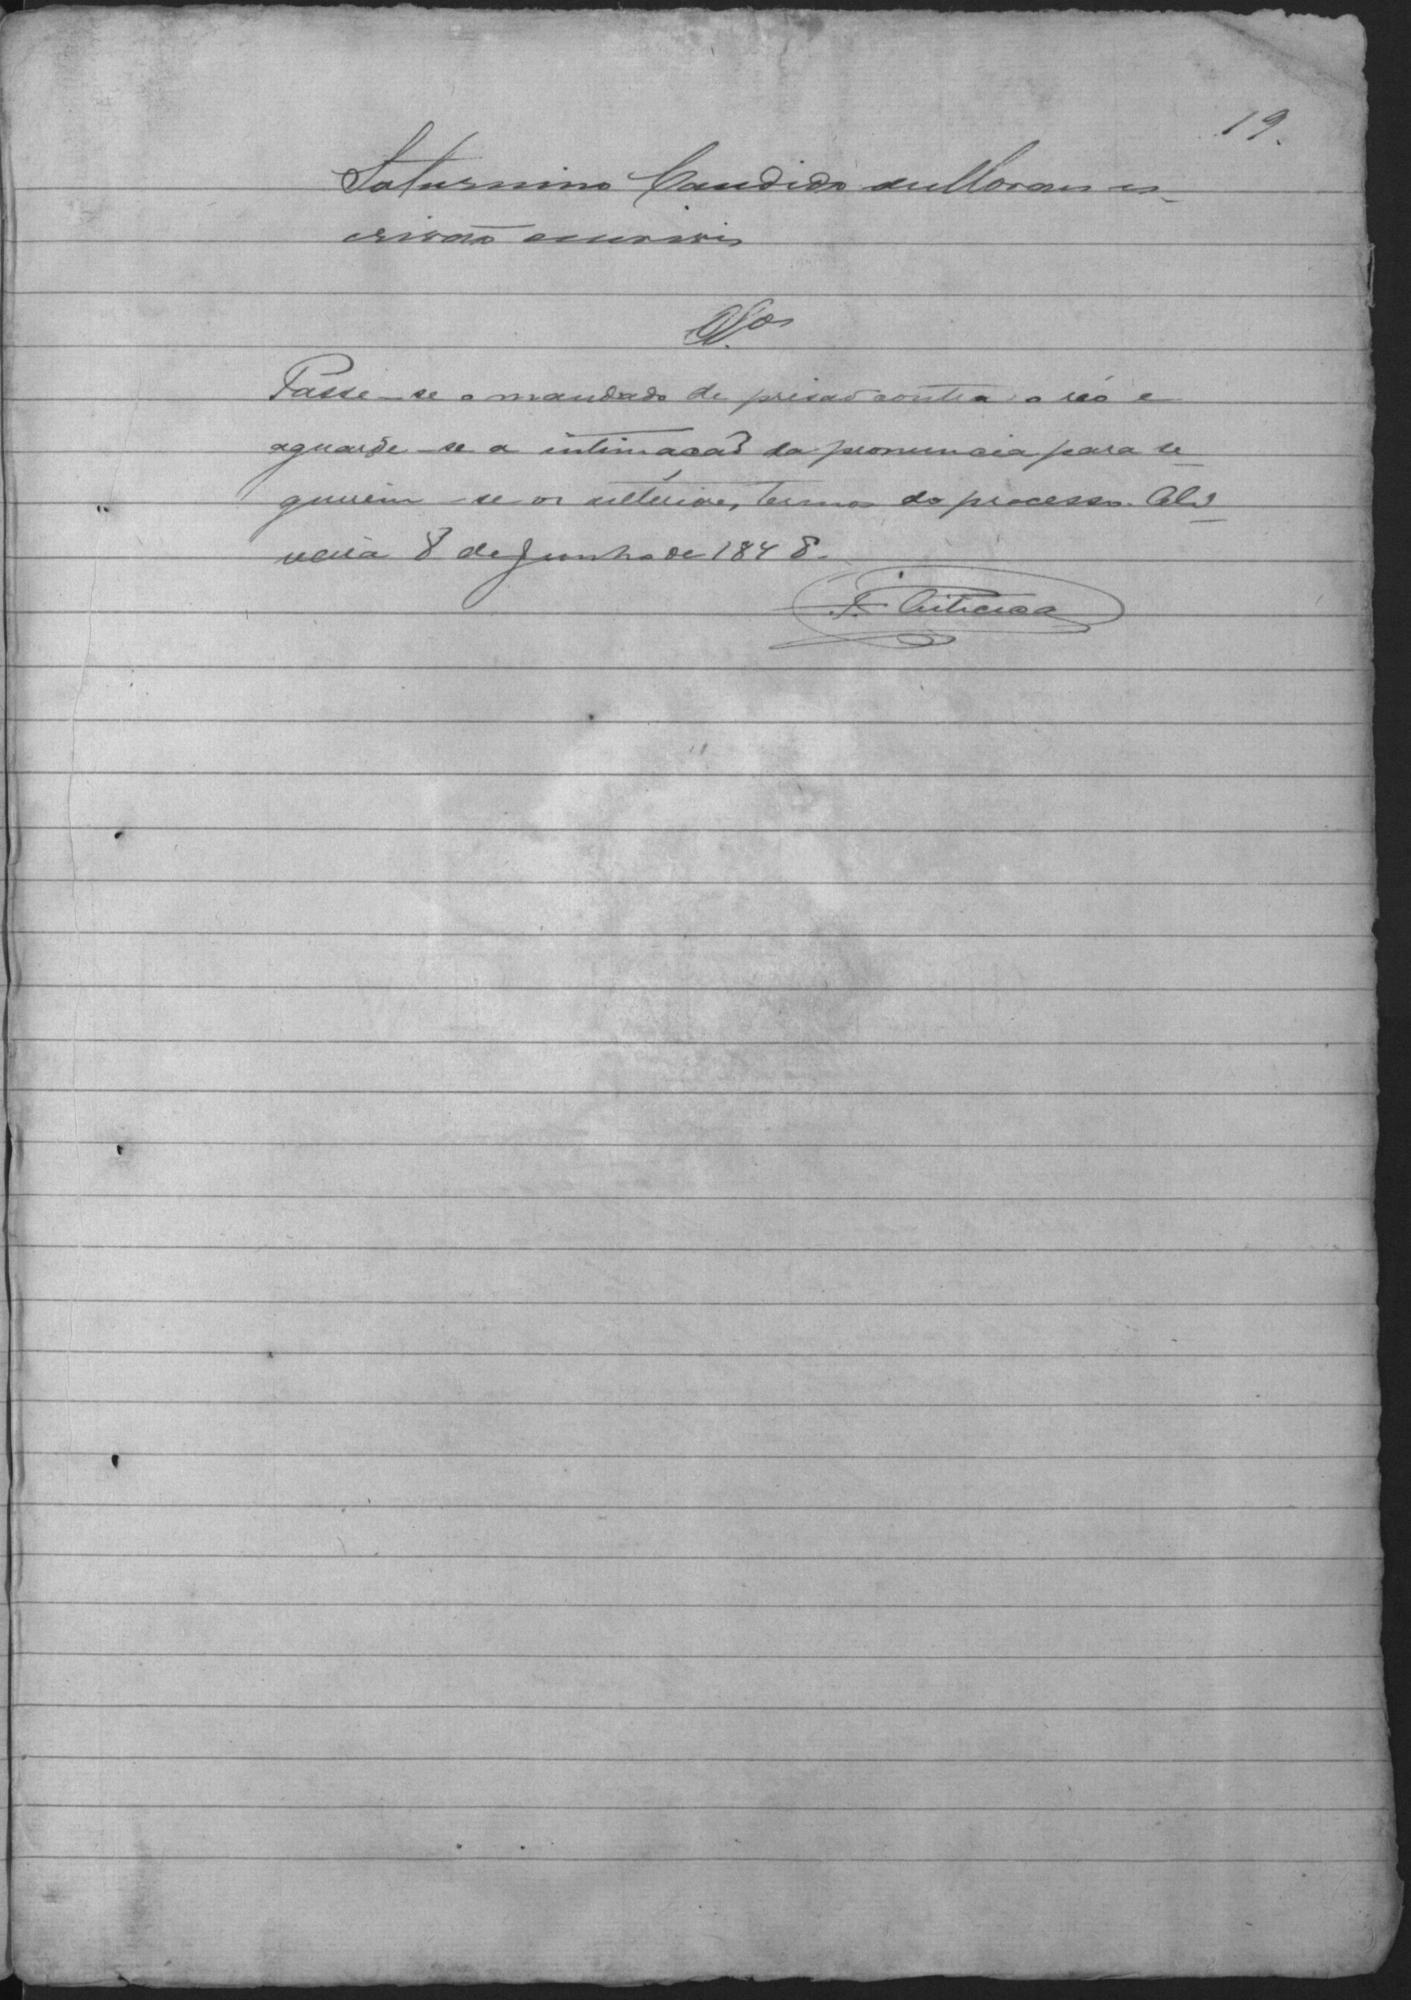 19.
Saturnino Candido de Moraes es-
crivão escrevi
Passe-se o mandado de prisão contra o réo e
aguarde-se a intimação da pronuncia para se-
guirem-se os ulteriores termos do processo.
8 de Junho de 1898.